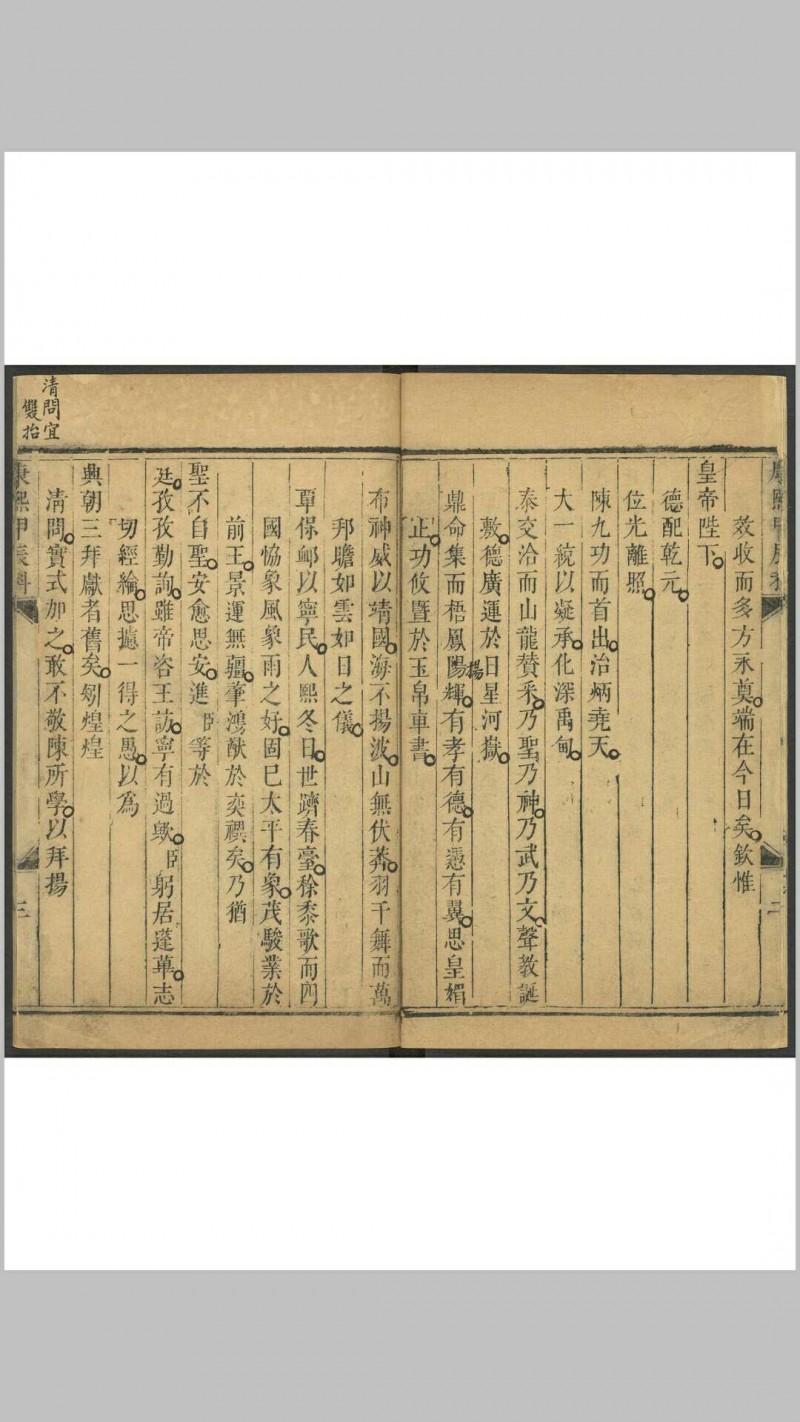 效收而多方永奠端在今日矣欽惟
皇帝陛下
德配乾元
位光離照
陳九功而首出治炳堯天
大一統以凝承化深禹甸
泰交洽而山龍贊采乃聖乃神乃武乃文聲教誕
敷德廣運於日星河嶽
鼎命集而梧鳳陽輝有孝有德有慿有翼思皇媚
揚
正功攸曁於玉帛車書
布神威以靖國海不揚波山無伏莽羽干舞而萬
邦瞻如雲如日之儀
單保鄣以寧民人熙冬日世躋春臺徐黍歌而四
國恊象風象雨之好固巳太平有象茂駿業於
前王景運無疆肇鴻猷於奕禩矣乃猶
聖不自聖安愈思安進臣等於
廷孜孜勤詢雖帝咨王訪寧有過歟臣躬居蓬蓽志
切經綸思攄一得之愚以爲
典朝三拜獻者舊矣矧煌煌
淸問實式加之敢不敬陳所學以拜揚
清問宜
雙抬
康熙甲辰科
二
康熙甲辰科
三